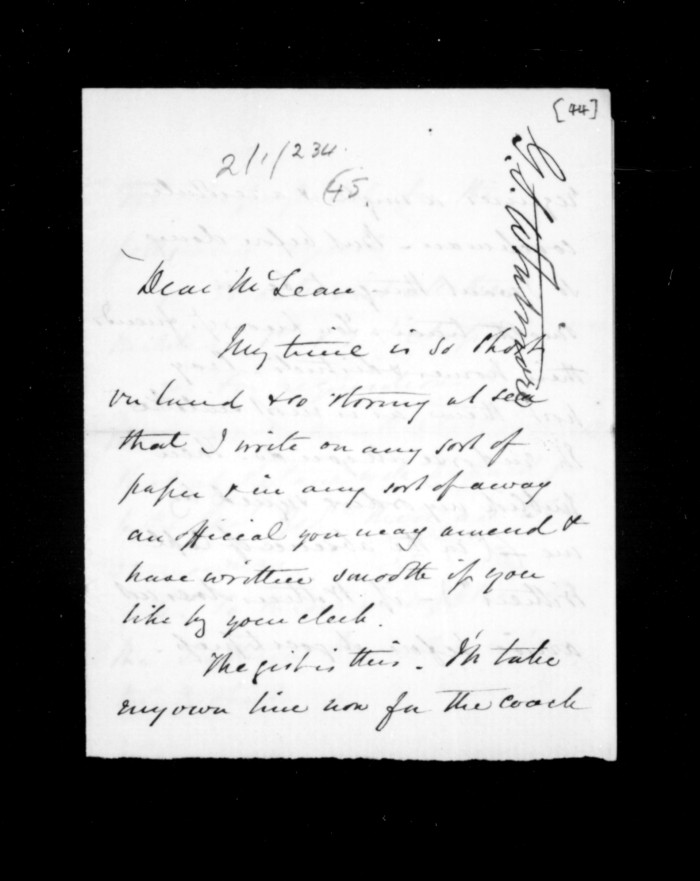 [44]
2/1/234.
45
G. S. Whitmore
Dear McLean
My time is so short
on land & so stormy at sea
that I write on any sort of
paper & in any sort of a way
an official you may amend &
have written smooth if you
like by your clerk.
The gist is this. I'll take
my own line now for the coach